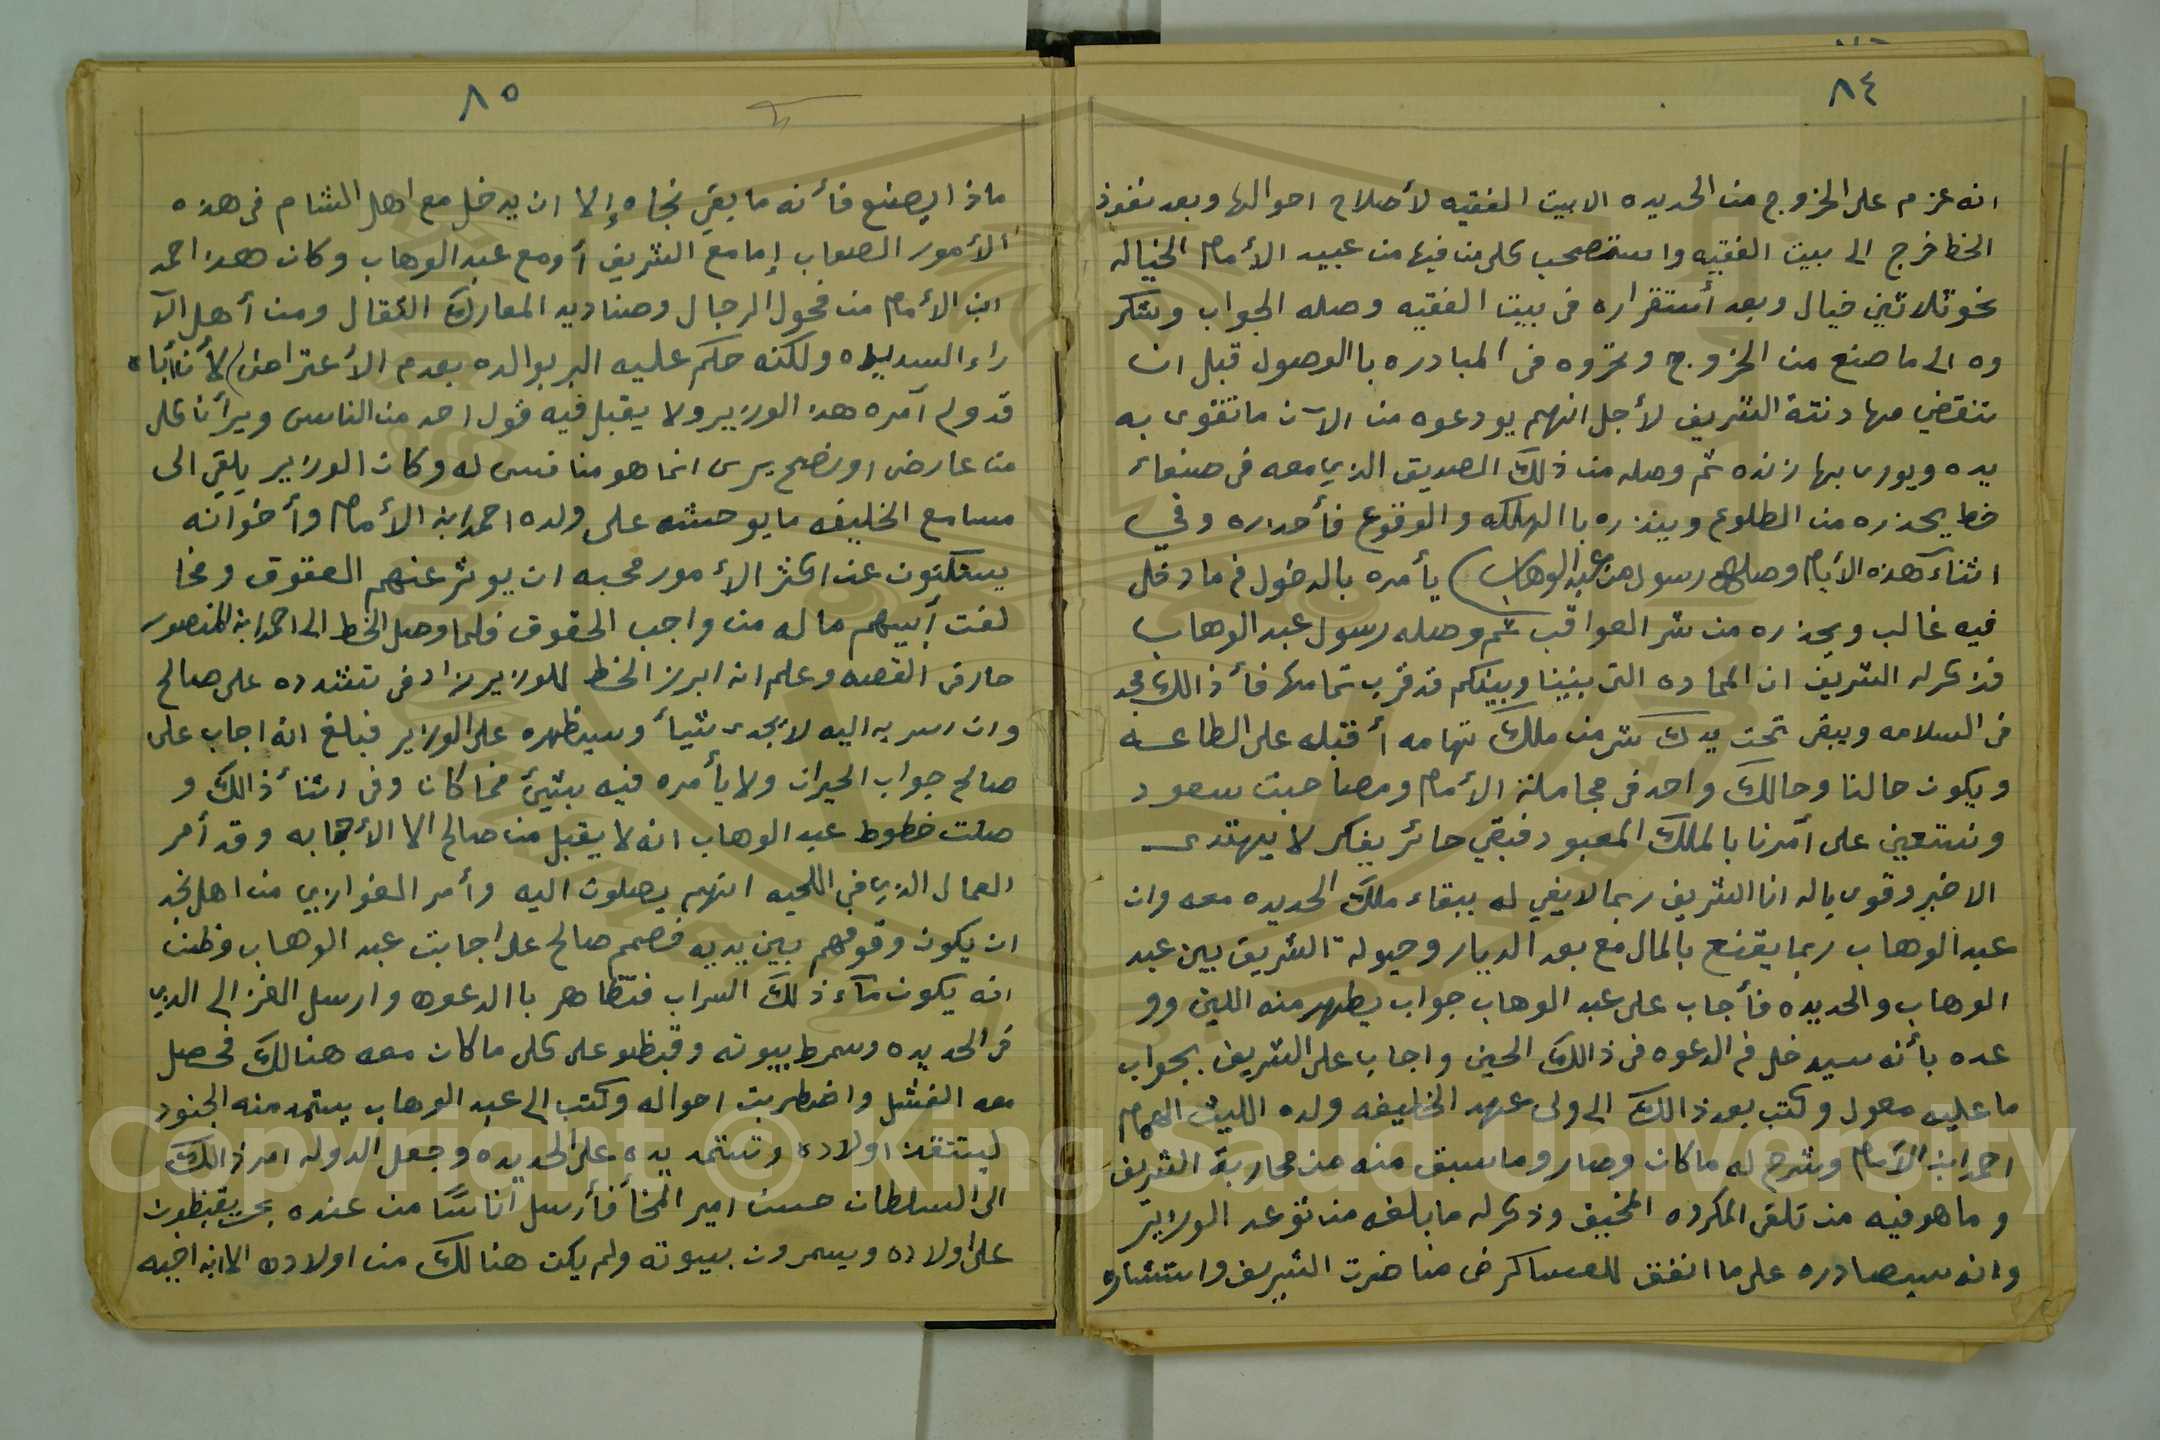 ٨٤
انه عزم على الخروج من الحديده الا بيت الفقيه لأصلاح احوالها وبعد نفوذ
الخط خرج الى بيت الفقيه واستصحب كلمن فيها من عبيد الأمام الخياله
نحو ثلاثين خيال وبعد أستقراره فى بيت الفقيه وصله الجواب وشكر
وه الى ما صنع من الخروج وحروه فى المبادره باالوصول قبل ان
تنقضي مهادنتة الشريف لأجل انهم يودعوه من الآن ما تقوى به
يده ويورى بها زنده ثم وصله من ذلك الصديق الذي معه فى صنعاء
خط يحذره من الطلوع وينذره باالهلكه والوقوع فأحداره وفي
اثناء هذه الأيام وصله رسول من عبد الوهاب يأمره بالدخول فى ما دخل
فيه غالب ويحذره من شر العواقب ثم وصله رسول عبد الوهاب
فذكر له الشريف ان المحاده التى بيننا وبينكم قد قرب تمامها فأذالك
فى السلامه ويبقى تحت يدك من ملك تهامه أقبله على الطاعه
ويكون حالنا وحالك واحد فى مجاملة الأمام ومصاحبت سعود
ونستعين على أمرنا بالملك المعبود فبقي حائر يفكر لا يهتدى
الاخير وقوى باله انا الشريف ربما لا يفي له ببقاء ملك الحديده معه وان
عبد الوهاب ربما يقنع بالمال مع بعد الديار وحيولة الشريف بين عبد
الوهاب والحديده فأجاب على عبد الوهاب جواب يظهر منه اللين وو
عده بأنه سيدخل فى الدعوه فى ذالك الحين واجاب على الشريف بجواب
ما عليه معول وكتب بعد ذالك الى ولى عهد الخليفه ولده الليث الهمام
احمد ابن الأمام وشرح له ما كان وصار وما سبق منه من محاربة الشريف
وما هو فيه من تلقى المكروه المخيف وذكر له ما بلغه من توعد الوزير
وانه سيصادره على ما انفق للعساكر فى مناضرت الشريف واستشاره
٨٥
ماذا يصنع فأنه ما بقي نجاه إلا ان يدخل مع اهل الشام فى هذه
الأمور الصعاب إما مع الشريف أو مع عبد الوهاب وكان هذا احمد
ابن الأمام من فحول الرجال وصناديد المعارك الثقال ومن أهل الآ
راء السديده ولكنه حكم عليه البر بوالده بعدم الأعتراض لأن أباه
قد ولى آمره هذا الوزير ولا يقبل فيه قول احد من الناس ويرأ ان كل
من عارض او نصح يرى انما هو منافس له وكان الوزير يلقي الى
مسامع الخليفه ما يوحشه على ولده احمد ابن الأمام وأخوانه
يسكتون عن اكثر الأمور محبه ان يوثر عنهم العقوق ومخا
لفت أبيهم ماله من واجب الحقوق فلما وصل الخط الى احمد ابن المنصور
حار فى القصه وعلم انه ابرز الخط للوزير زاد فى تشدده على صالح
وان رسر به اليه لا يجدى شيأ وسيظهره على الوزير فبلغ انه اجاب على
صالح جواب الحيران ولا يأمره فيه بشئ فما كان وفى اثنأ ذالك و
صلت خطوط عبد الوهاب انه لا يقبل من صالح الا الأجابه وقد أمر
العمال الذي فى اللحيه انهم يصلون اليه وأمر المغوازبي من اهل نجد
ان يكون وقوفهم بين يديه فصمم صالح على اجابت عبد الوهاب وظن
انه يكون مآء ذلك السراب فتظاهر باالدعوه وارسل الغز الى الدي
فى الحديده وسمرط بيوته وقبظو على كل ما كان معه هنالك فحصل
معه الفشل واضطربت احواله وكتب الى عبد الوهاب يستمد منه الجنود
ليتنقذ اولاده وتستمد يده على الحديده وجعل الدوله امر ذالك
الى السلطان حسن امير المخأ فأرسل اناسًا من عنده بحر يقبظون
على اولاده ويسمرون بيوته ولم يكن هنالك من اولاده الا ابن اخيه
Copyright © King Saud University